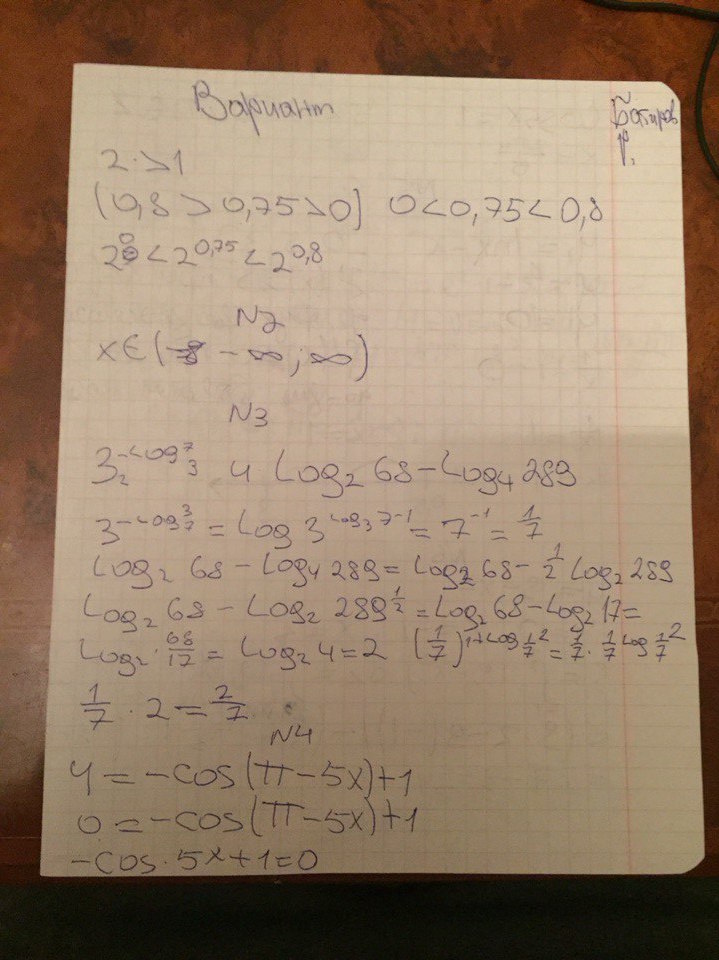 Вариант
р.
2·>1
(0,8 > 0,75 > 0] 0 < 0,75 < 0,8
2^0 < 2^0,75 < 2^0,8
N2
x ∈ (-∞; ∞)
N3
и Log₂ 68 - Log₄ 289
= Log 3^Log₃ 7^-1 = 7^-1 = 1/7
Log₂ 68 - Log₄ 289 = Log₂ 68 - 1/2 Log₂ 289
Log₂ 68 - Log₂ 289^1/2 = Log₂ 68 - Log₂ 17 =
Log₂ · 68/17 = Log₂ 4 = 2 (1/7)^1+Log 1/7 2 = 1/7 · 1/7^Log 1/7 2
1/7 · 2 = 2/7
N4
y = -cos(π - 5x) + 1
0 = -cos(π - 5x) + 1
-cos · 5x + 1 = 0